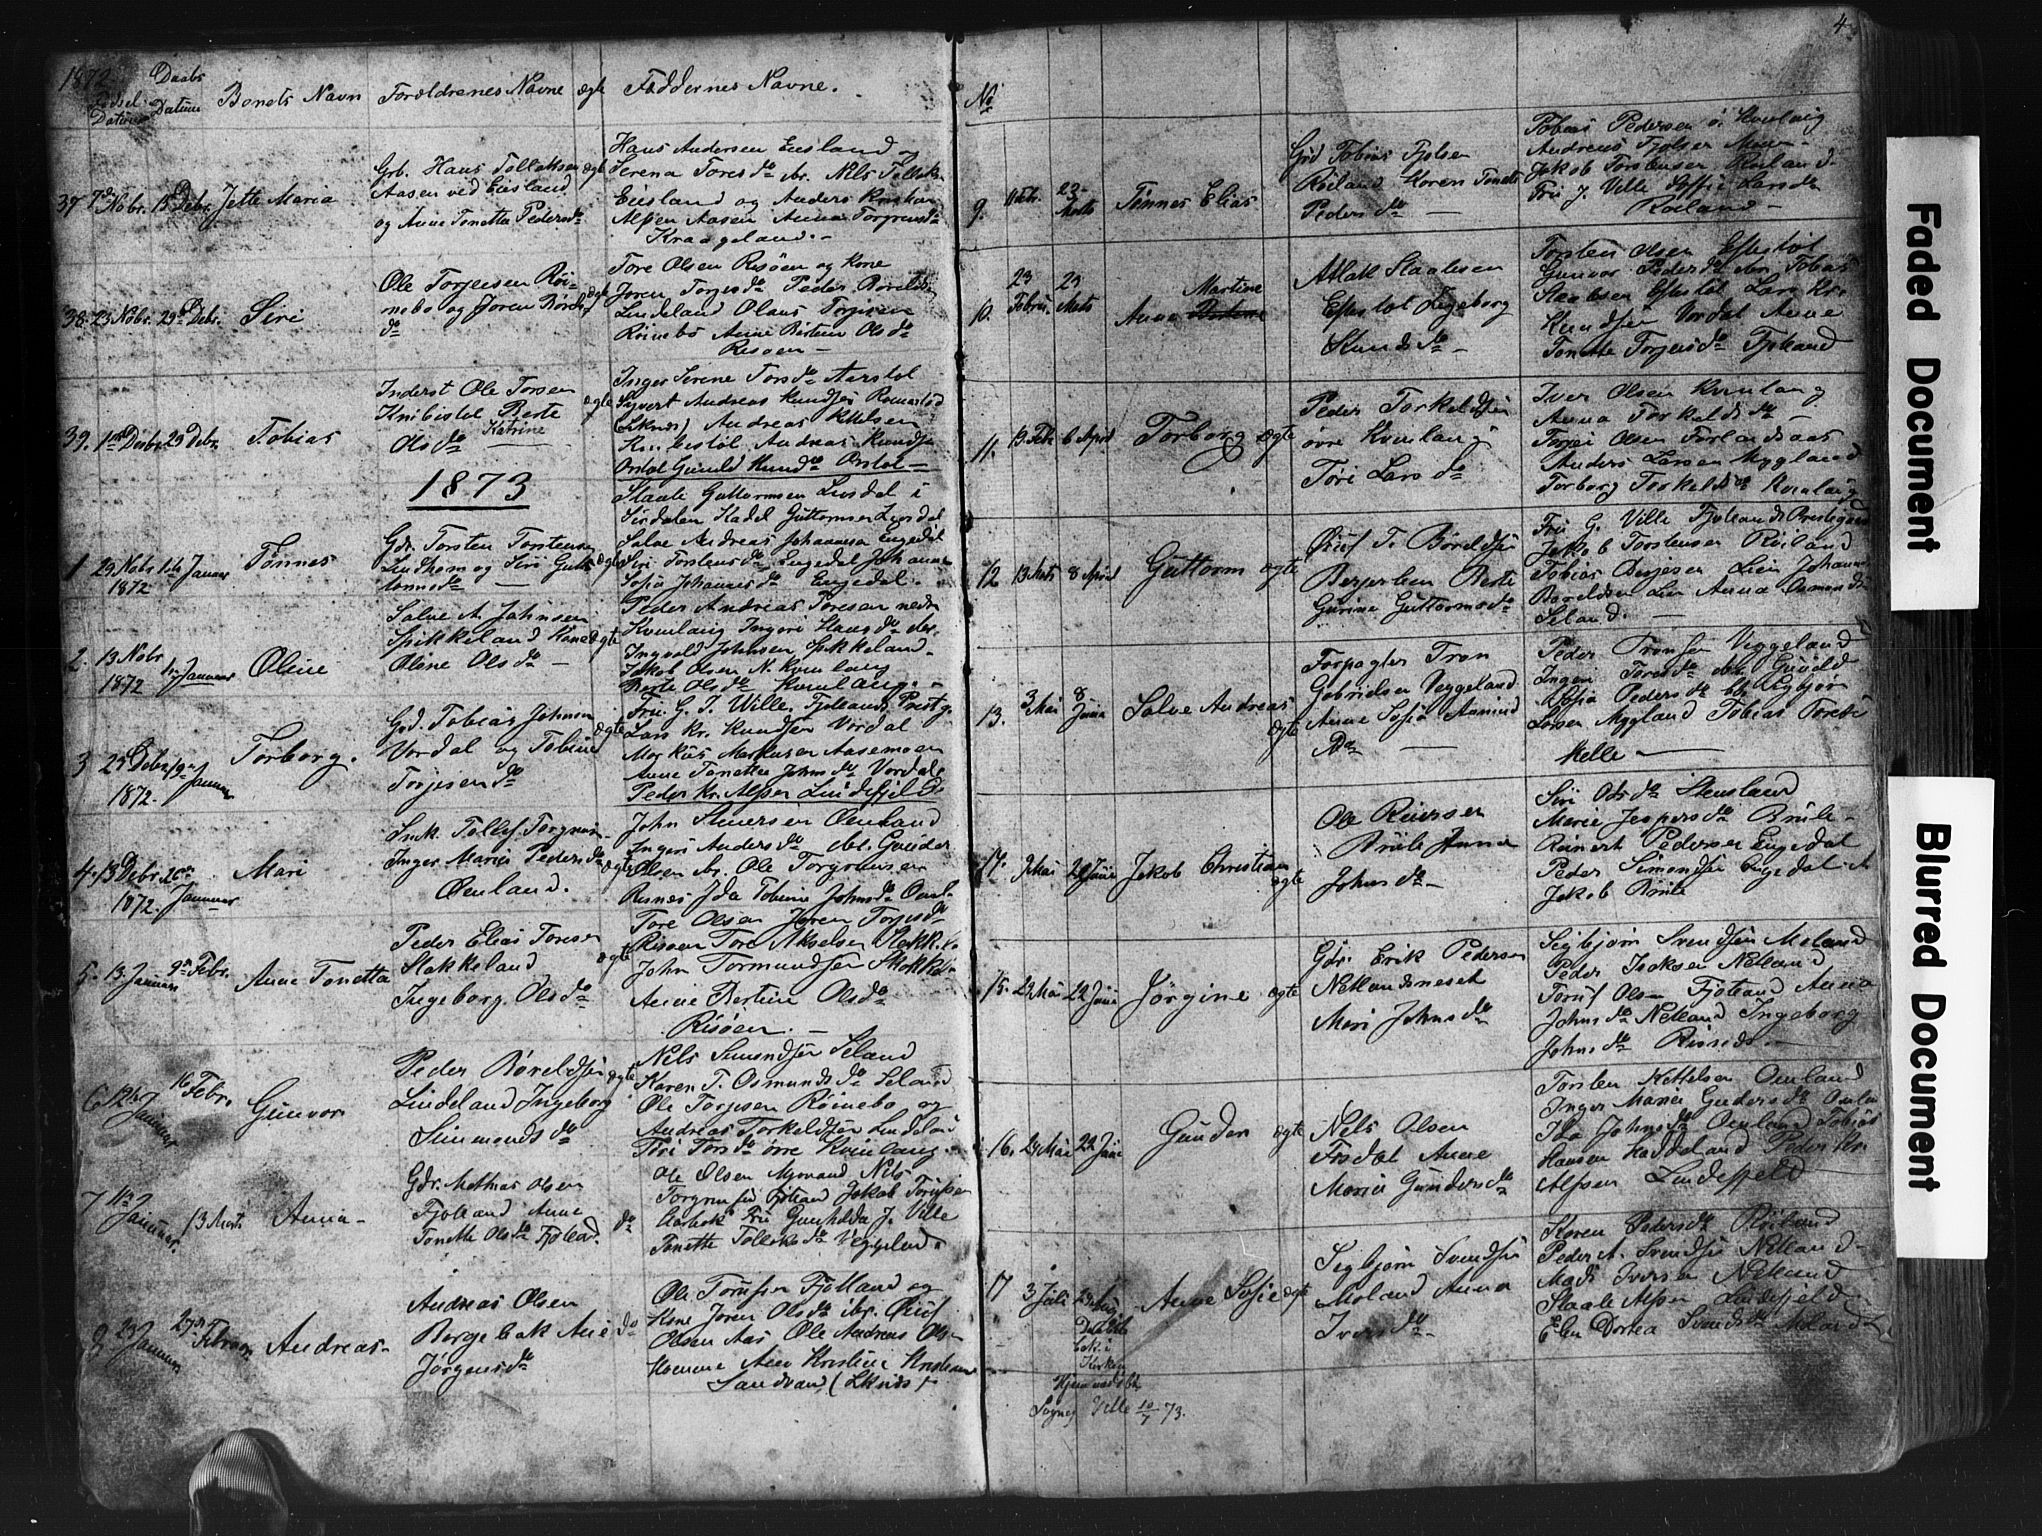 1872
Fødsel Datum
Daabs Datum
Barnets Navn
Forældrenes Navne
ægte
Faddernes Navne.
37 7de Nobr. 15 Debr. Jette Maria
Grb. Hans Tollaksen
Aasen ved Eiesland
og Anne Tonetta Pedersda
ægte
Hans Andersen Eiesland og
Serena Toresda br. Nils Tollaks.
Eiesland og Anders
Alfsen Aasen Anna Torgrimsda
Kraageland.
38. 23 Nobr. 29de Debr. Siri
Ole Torjesen Røi-
nebø og Joren Børilds
da
ægte
Tore Olsen Risøen og Kone
Joren Torjesda Peder Børilds.
Lindeland Olaus Torjesen
Røinebø Anne Bertine Olsda
Risøen
39. 1ste Debr. 29 Debr. Tobias
Inderst Ole Torsen
Knibestøl Berte
Katrine
Olsda
ægte
Inger Serene Torsda Aarstøl
Syvert Andreas Knudsen
Andreas Kittelsen
Andreas Knudsen
Gunild Knudsda
1873
1 29 Nobr. 1ste Januar Tønnes
1872
Gdr. Torsten Torstensen
Lindhom og Siri Gutt-
ormsda
ægte
Staale Guttormsen Lusdal i
Sirdalen Kadel Guttormsen Lusdal
Salve Andreas Johannesen Engedal
Siri Torstensda Engedal Johanne
Sofia Johannesda Engedal.
2. 13 Nobr 1ste Januar Oline
1872
Salve A. Johnsen
Spikkeland Kone
Oline Olsda
ægte
Peder Andreas Toresen nedre
Kvinlaug Ingeri
Ingvald Johnsen Spikkeland.
Jakob Olsen N. Kvinlaug
Berte Olsda Kvinlaug.
3 25 Debr. 19de Januar Torborg.
1872.
Gd. Tobias Johnsen
Vordal og Tobine
Torjesenda
ægte
Frue G. J. Wille, Fjotlands Prestg.
Lars Kr. Knudsen Vordal
Markus Markusen Aasemoen
Anne Tonette Johnsda Vordal
Peder Kr. Alfsen Lindefjeld
4. 13 Debr. 26de Januar Mari
1872.
Tollef Torgrims.
Inger Maria Pedersda
Omland.
ægte
John Omland
Ingeri Andersda Gunder
Olsen br. Ole Torgrimsen
Risnes Ida Tobine Johnsda Oml.
5. 13 Januar 9de Febr. Anne Tonetta
Peder Elias Toresen
Stakkeland
Ingeborg. Olsda
ægte
Tore Olsen Joren Torjesda
Risøen Tore Akselsen
John Tormundsen
Anne Bertine Olsda
Risøen.
6 12te Januar 16 Febr. Gunvor
Peder Børildsen
Lindeland Ingeborg
Simmondsda
ægte
Nels Simondsen Seland
Karen T. Osmundsda Seland
Ole Torjesen Røinebø og
Andreas Torkeldsen Lindeland
Tori Torsda øvre Kvinlaug
7 11te Januar 13 Marts Anna
Gdr. Mathias Olsen
Fjotland Anne
Tonette Olsda Fjotland.
do
Ole Olsen Mjovand Nils
Torgrimsen Fjotland Jakob Torufsen
Frue Gunhilda J. Wille
Tonette Tollaksda Veggeland
8 23 Januar 27de Februar Andreas
Andreas Olsen
Borgebak Ane
Jørgensda
do
Ole Torufsen Fjotland og
Kone Joren Olsda
Olsen Aas Ole Andreas Ols-
Homme Ane Kristine
Sandvand (Lknds)
No
4
9. 23 Marts Tønnes Elias
Grd Tobias Fjelsen
Røiland Karen Tonette
Pedersda
Tobias Pedersen ø. Kvinlaug
Andreas Fjelsen
Jakob Torstensen Røiland
Frue J. Wille Soffie Larsda
Røiland
10. 23 Febru. 23 Marts Anna Martine
Atlak Staalesen
Eftestøl Ingeborg
Knudsda
Torsten Olsen Eftestøl
Gunvor Pedersda Tobias
Staalesen Eftestøl Lars Kr.
Knudsen Vordal Anne
Tonette Torjesda Fjotland
11. 13 Feb 6 April Torborg ægte
Peder Torkeldsen
øvre Kvinlaug
Tori Larsda
Iver Olsen Kvinlaug
Anna Torkeldsda
Torjei Olsen Førlandsaas
Anders Larsen Mygland
Torborg Torkeldsda Kvinlaug
12 13 Mts 8 April Guttorm ægte
T. Børildsen
Berte
Gurine Guttormsda
Frue G. Wille Fjotlands Prestegaard
Jakob Torstensen Røiland
Tobias Lien Johannes
Børildsen Lien Anna Osmundsda
Seland.
13. 3 Mai 8 Juni Salve Andreas
ægte
Forpagter Tron
Gabrielsen Veggeland
Anne Sofia Asmund
Da
Peder Tronsen Veggeland
Ingeri Toresda Gunild
Sofia Pedersda Sigbjørn
Larsen Mygland Tobias
Helle
14. 9 Mai 22 Juni Jakob Christian
ægte
Ole
Brøile Anna
Johnsda
Siri Olsda Stensland
Maria Jespersda Brøile
Reinert Pedersen Engedal
Peder Simonsen Engedal
Jakob Brøile
15. 23 Mai 22 Juni Jørgine ægte
Gdr. Erik Pedersen
Netlandsneset
Mari Johnsda
Sigbjørn Svendsen Moland
Peder Isaksen Netland
Toruf Ols- Fjotland Anna
Johnsda Netland Ingeborg
Johnsda
16. 24 Mai 22 Juni Gunder ægte
Nels Olsen
Frsdal Anne
Maria Gundersda
Torsten Kittelsen Omland
Inger Maria Gundersda Omland
Ida Johnsda Omland Tobias
Hansen Haddeland Peder Kr.
Alfsen Lindefjeld
17 3 Juli Anne Sofie ægte
Sigbjørn Svendsen
Moland Anna
Iversda
Karen Pedersda Røiland
Peder A. Svendsen Netland
Mads Iversen Netland
Staale Alfsen Lindefjeld
Elen Dortea Svendsda Moland
i
Kirken
Hjemmedøbt
Sognepr Wille 10/7 73.
Faded Document
Blurred Document